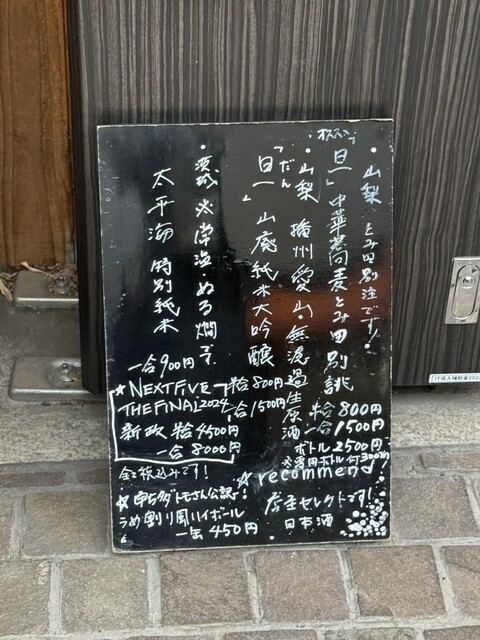 オススメ
・山梨 とみ田別注です!
「旦」中華蕎麦とみ田別誂
拾800円
一合1500円
ボトル2500円
※専用ボトル付300ml
・山梨 播州愛山・無濾過生原酒
「だん
旦」山廃純米大吟醸
拾800円
一合1500円
・茨城 ぬる燗で
太平海 特別純米
一合900円
★NEXTFIVE
THE FINAL2024
新政 拾4500円
一合8000円
全て税込みです!
☆recommend!
店主セレクトです!
日本酒
うめ割り風ハイボール
一缶450円